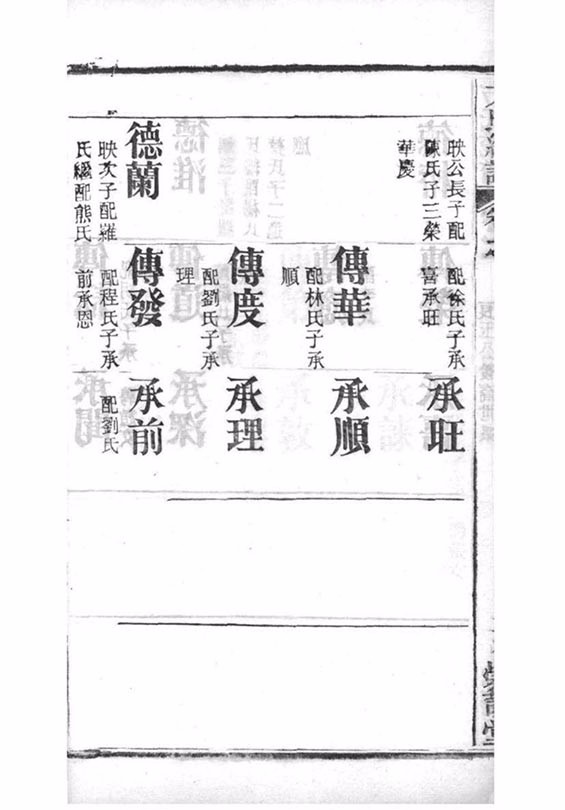 映公長子配
陳氏子三榮
華慶
德蘭
映次子配羅
氏繼配熊氏
配徐氏子承
喜承旺
傳華
配林氏子承
順
傳度
配劉氏子承
理
傳發
配程氏子承
前承恩
承旺
承順
承理
承前
配劉氏